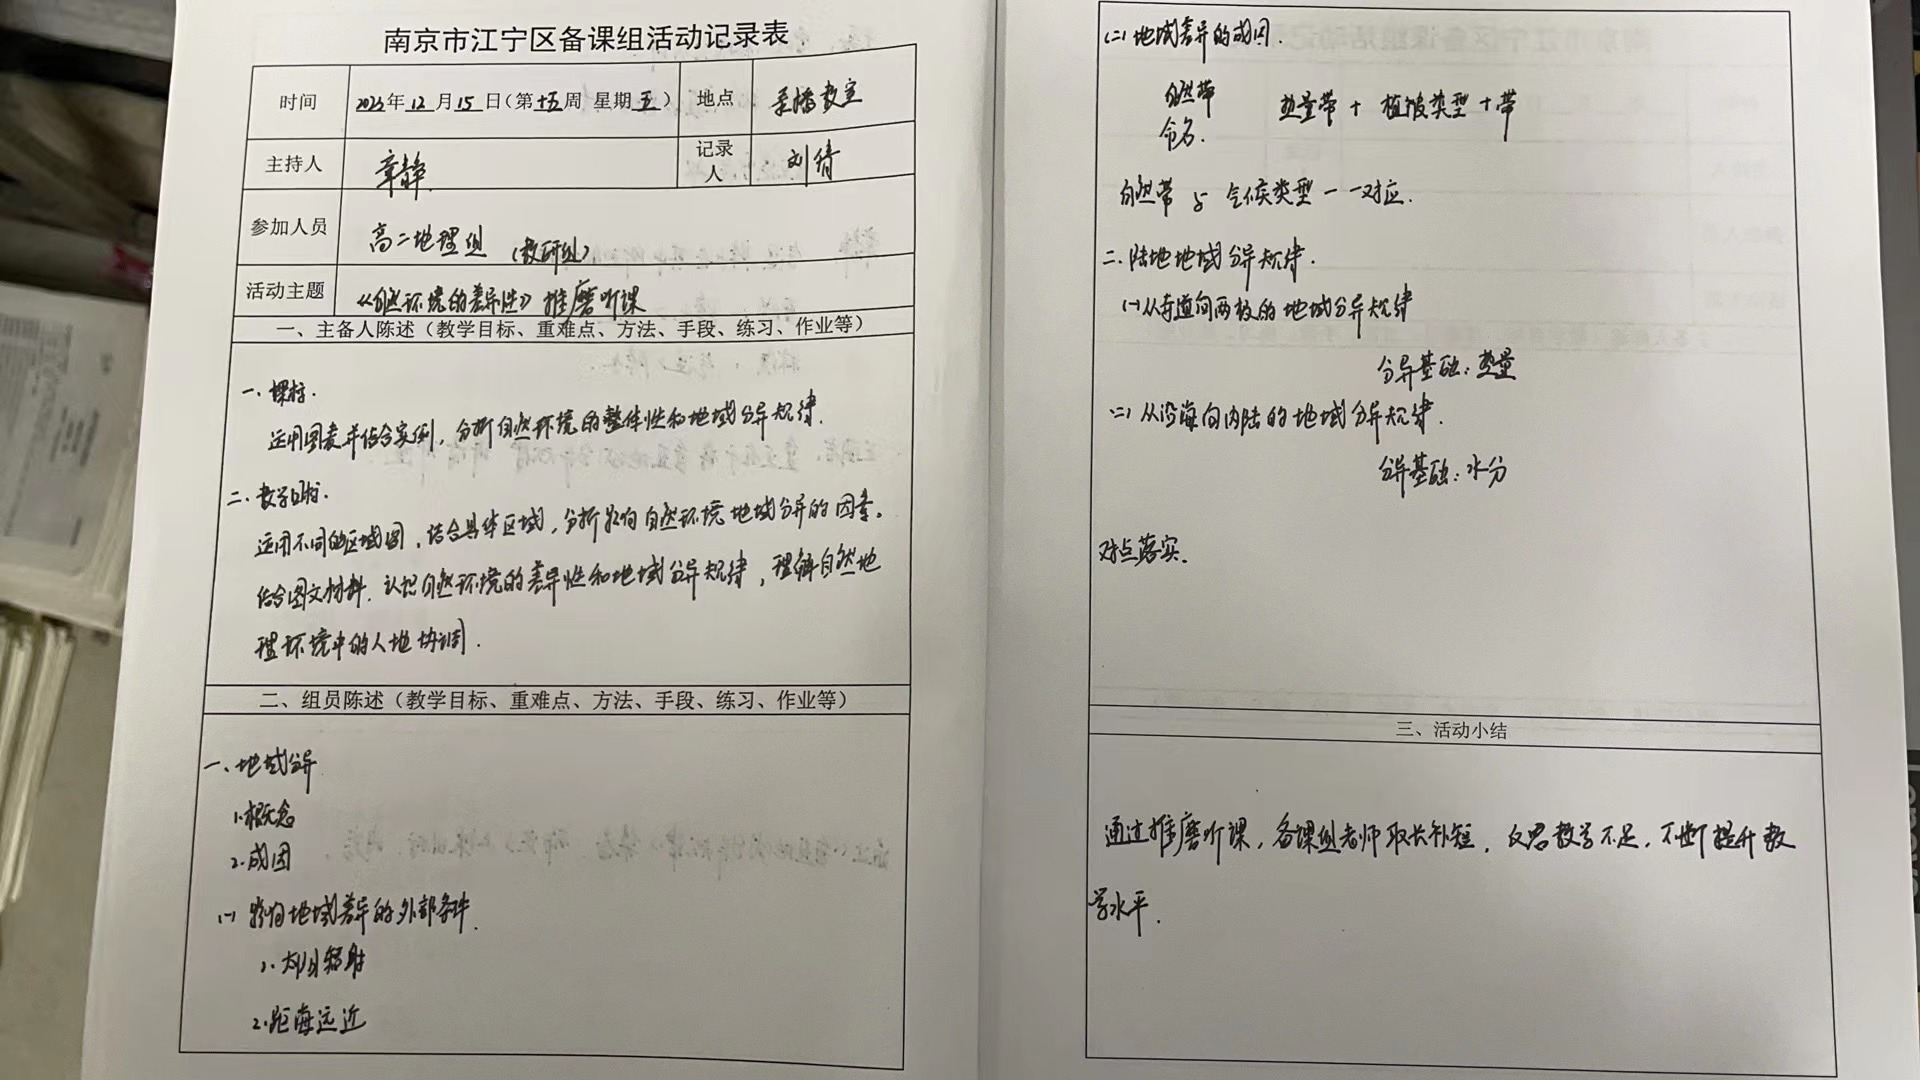 南京市江宁区备课组活动记录表
时间 2023年12月15日(第十五周 星期五) 地点 录播教室
主持人 章静 记录人 刘倩
参加人员 高二地理组 (教研组)
活动主题 《自然环境的差异性》推磨听课
一、主备人陈述(教学目标、重难点、方法、手段、练习、作业等)
一.课标.
运用图表并结合实例,分析自然环境的整体性和地域分异规律.
二.教学目标.
运用不同的区域图,结合具体区域,分析影响自然环境地域分异的因素。
结合图文材料.认识自然环境的差异性和地域分异规律,理解自然地
理环境中的人地协调.
二、组员陈述(教学目标、重难点、方法、手段、练习、作业等)
一、地域分异
1.概念
2.成因
(一)影响地域差异的外部条件.
1.太阳辐射
2.距海远近
(二)地域差异的成因.
自然带
命名.
热量带+植被类型+带
自然带与气候类型一一对应.
二.陆地地域分异规律.
(一)从赤道向两极的地域分异规律
分异基础:热量
(二)从沿海向内陆的地域分异规律.
分异基础:水分
对点落实.
三、活动小结
通过推磨听课,备课组老师取长补短,反思教学不足,不断提升教
学水平.